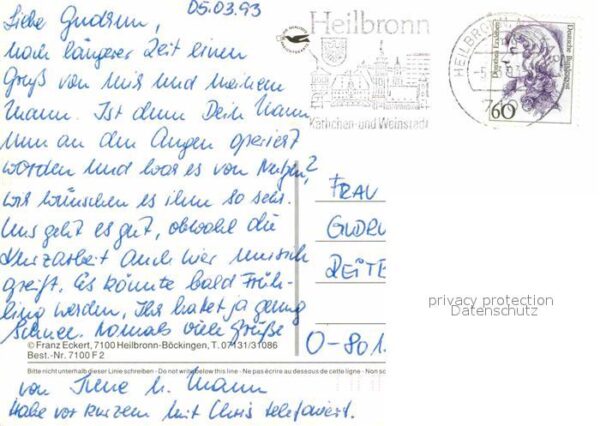 05.03.93
Liebe Gudrun,
nach längerer Zeit einen
Gruß von mir und meinem
Mann. Ist denn Dein Mann
nun an den Augen operiert
worden und war es von Nutzen?
wir wünschen es ihm so sehr.
Uns geht es gut, obwohl die
Kurzarbeit auch hier um sich
greift. Es könnte bald Früh-
ling werden, Ihr habt ja genug
Schnee. Nomals viele Grüße
© Franz Eckert, 7100 Heilbronn-Böckingen, T. 07131/31086
Best.-Nr. 7100 F 2
Bitte nicht unterhalb dieser Linie schreiben - Do not write below this line - Ne pas écrire au dessous de cette ligne - Non sc
von Irene u. Mann
Habe vor kurzem mit Chris telefoniert.
Heilbronn
Käthchen-und Weinstadt
HEILBRONN
Deutsche Bundespost
60
FRAU
GUDRU
REITE
O-801
privacy protection
Datenschutz